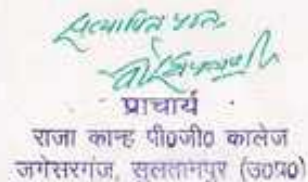 सत्यापित प्रति
प्राचार्य
राजा कान्ह पी0जी0 कालेज
जगेसरगंज, सुलतानपुर (उ०प्र०)